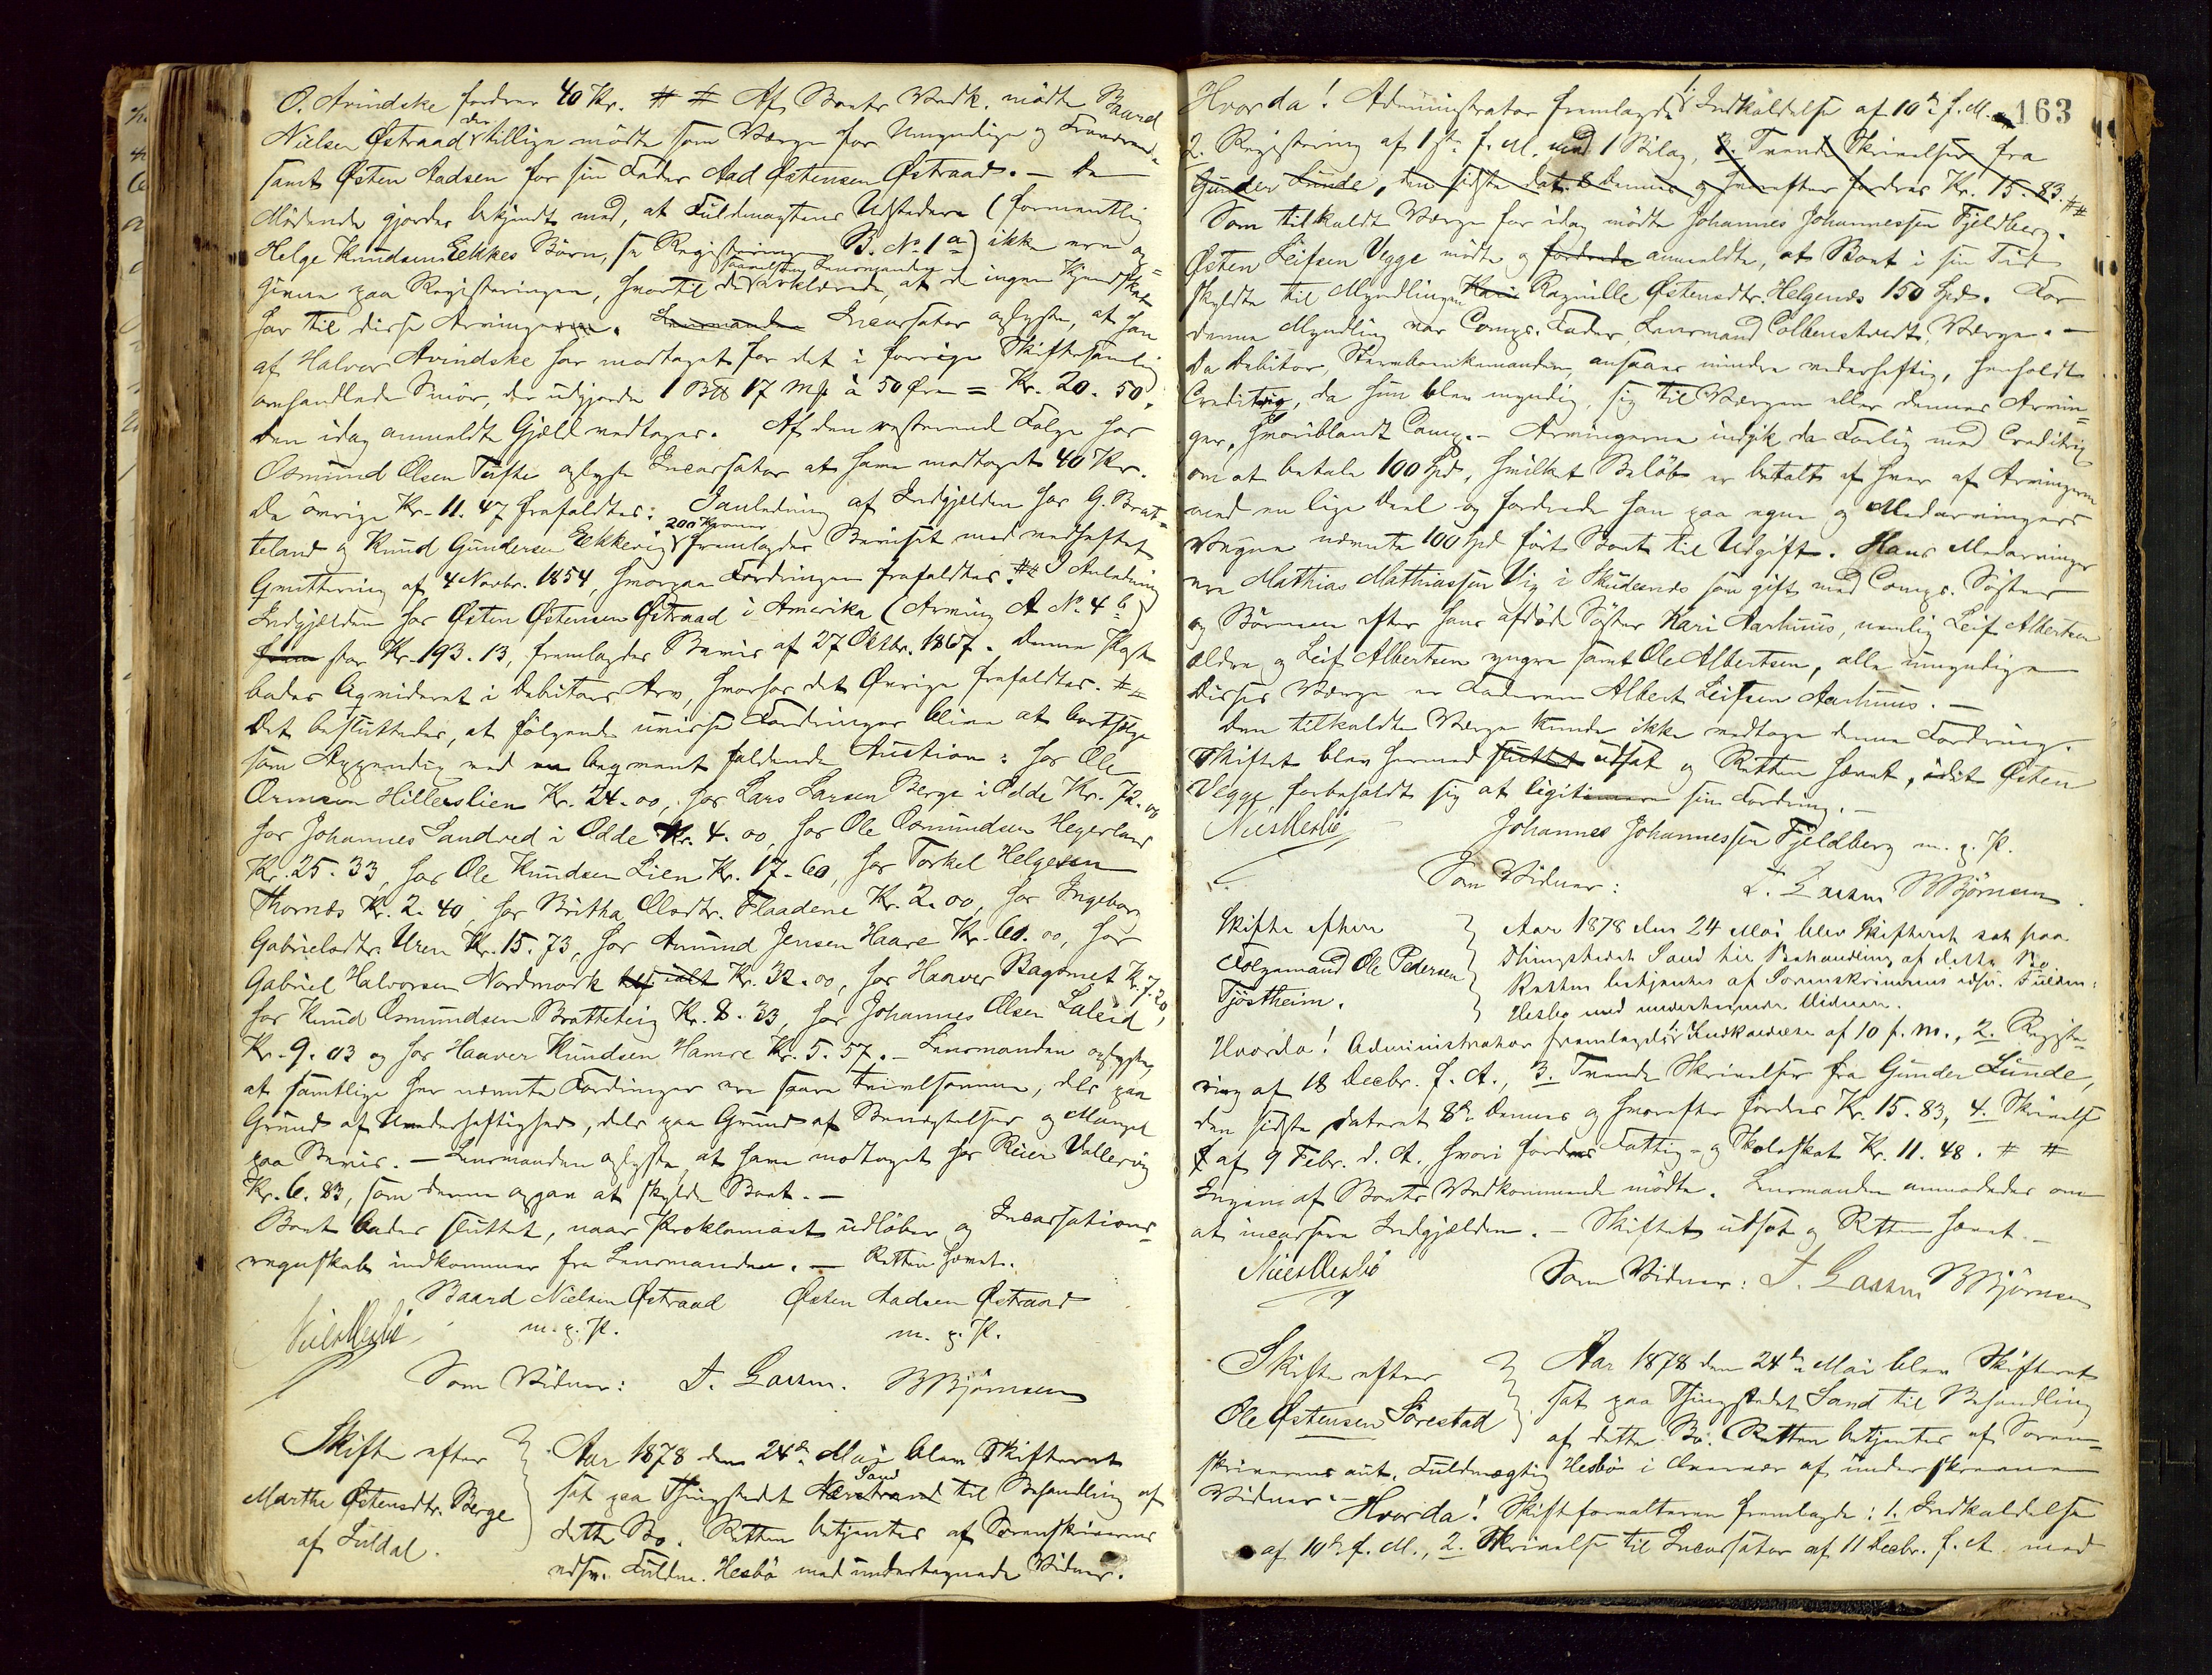 O. Arindske fordrer 40 Kr. # # Af Boets Vedk. mødte Baard
Nielsen Østraad der tillige mødte som Værge for Umyndige og Fraværende
samt Østen Aadsen for sin Fader Aad Østensen Østraad. — De
Mødende gjordes bekjendt med, at Fuldmagtens Udstedere (formentlig
Helge Knudsens Eekkes Børn, se Registreringen B. No 1 a) ikke ere op-
givne paa Registeringen, hvortil de saavelsom Lensmanden erklærede, at de ingen Kjendskab
har til disse Arvinger. Lensmanden Incassator oplyste, at han
af Halvor Arindske har modtaget for det i forrige Skiftesamling
omhandlede Smør, der udgjorde 1 B℔ 17 Mk à 50 Øre = Kr. 20. 50.
Den idag anmeldte Gjæld vedtoges. Af den resterende Følge hos
Osmund Olsen Tufte oplyste Incassator at have modtaget 40 Kr.
De øvrige Kr. 11. 47 frafaldtes. I Anledning af Indgjælden hos G. Brat-
teland og Knud Gundersen Eekkerig 200 Kroner fremlagdes Beviset med vedheftet
Qvittering af 4 Novbr. 1854, hvorpaa Fordringen frafaldtes. ## I Anledning
Indgjælden hos Østen Østensen Østraad i Amerika (Arving A No. 4 b)
stor Kr. 193. 13, fremlagdes Bevis af 27 Oktbr. 1867. Denne Post
bades liqvideret i Debitors Arv, hvorhos det Øvrige frafaldtes. ##
Det besluttedes, at følgende uvisse Fordringer blive at bortsælge
som Appendix ved en beqvemt faldende Auction: hos Ole
Ormsen Hillerslien Kr. 24. 00, hos Lars Larsen Berge i Odde Kr. 72. 00
hos Johannes Sandved i Odde Kr. 4. 00, hos Ole Osmundsen Hegerland
Kr. 25. 33, hos Ole Knudsen Lien Kr. 17. 60, hos Torkel Helgesen
Thornæs Kr. 2. 40, hos Britha Olsdtr. Flaadene Kr. 2. 00, hos Ingeborg
Gabrielsdtr. Uren Kr. 15. 73, hos Amund Jensen Haare Kr. 60. 00, hos
Gabriel Halvorsen Nordmork Kr. 32. 00, hos Haaver Bagomet Kr. 7. 20,
hos Knud Osmundsen Bratteteig Kr. 8. 33, hos Johannes Olsen Laleid
Kr. 9. 03 og hos Haaver Knudsen Hamre Kr. 5. 57. — Lensmanden oplyste,
at samtlige her nævnte Fordringer ere saare tvivlsomme, dels paa
Grund af Uvederheftighed, dels paa Grund af Benegtelser og Mangel
paa Bevis. — Lensmanden oplyste, at have modtaget hos Reier Vallerig
Kr. 6. 83, som denne opgav at skylde Boet. —
Boet bades sluttet, naar Proklamaet udløber og Incassations-
regnskab indkommer fra Lensmanden. — Retten hævet.
Baard Nielsen Østraad Østen Aadsen Østraad
m. p. P. m. p. P.
Niels Hesbø
Som Vidner: T. Larsen. B Bjørnsen
Skifte efter
Marthe Østensdtr. Berge
af Suldal.
Aar 1878 den 24de Mai blev Skifteret
sat paa Thingstedet Nærstrand Sand til Behandling af
dette Bo. Retten betjentes af Sorenskriverens
edsv. Fuldm. Hesbø med undertegnede Vidner.
163
Hvorda! Administrator fremlagde 1. Indkaldelse af 10de f. M.
2. Registrering af 1ste f. M. med 1 Bilag, 3. Tvende Skrivelser fra
Gunder Lunde, den sidste dat. 8 dennes og hvorefter fordres Kr. 15. 83. ##
Som tilkaldt Værge for idag mødte Johannes Johannessen Fjeldberg.
Østen Leifsen Vegge mødte og fordrede anmeldte, at Boet i sin Tid
skyldte til Myndlingen Kari Ragnille Østensdtr. Helgenæs 150 Spd. For
denne Myndling var Comps. Fader, Lensmand Colbenstvedt, Værge. —
Da Debitor, Stervboenkemanden, ansaaes mindre vederheftig, henholdt
Creditrix, da hun blev myndig, sig til Værgen eller dennes Arvin-
ger, hvoriblandt Comp. — Arvingerne indgik da Forlig med Creditrix
om at betale 100 Spd, hvilket Beløb er betalt af hver af Arvingerne
med en lige Deel og fordrede han paa egne og Medarvingers
Vegne nævnte 100 Spd ført Boet til Udgift. Hans Medarvinger
ere Mathias Mathiassen Vig i Skudesnæs som gift med Comps. Søster
og Børnene efter hans afdøde Søster Kari Aarhuus, nemlig Leif Albertsen
ældre og Leif Albertsen yngre samt Ole Albertsen, alle umyndige
Disses Værge er Faderen Albert Leifsen Aarhuus. —
Den tilkaldte Værge kunde ikke vedtage denne Fordring.
Skiftet blev hermed sluttet udsat og Retten hævet, idet Østen
Vegge forbeholdt sig at legitimere sin Fordring. —
Niels Hesbø Johannes Johannessen Fjeldberg m. p. P.
Som Vidner: T. Larsen B Bjørnsen
Skifte efter
Folgemand Ole Pedersen
Tjøstheim.
Aar 1878 den 24 Mai blev Skifteret sat paa
Thingstedet Sand til Behandling af dette Bo
Retten betjentes af Sorenskriverens edsv. Fuldm.
Hesbø med undertegnede Vidner.
Hvorda! Administrator fremlagde 1. Indkaldelse af 10 f. M., 2. Registe-
ring af 18 Decbr. f. A., 3. Tvende Skrivelser fra Gunder Lunde,
den sidste dateret 8de dennes og hvorefter fordres Kr. 15. 83, 4. Skrivelse
af 9 Febr. d. A., hvori fordres Fattig- og Skoleskat Kr. 11. 48. # #
Ingen af Boets Vedkommende mødte. Lensmanden anmodedes om
at incassere Indgjælden. — Skiftet udsat og Retten hævet. —
Niels Hesbø Som Vidner: T. Larsen B Bjørnsen
Skifte efter
Ole Østensen Sørestad
Aar 1878 den 24de Mai blev Skifteret
sat paa Thingstedet Sand til Behandling
af dette Bo. Retten betjentes af Soren-
skriverens aut. Fuldmægtig Hesbø i Overvær af underskrevne
Vidner. — Hvorda! Skifteforvalteren fremlagde: 1. Indkaldelse
af 10de f. M., 2. Skrivelse til Incassator af 11 Decbr. f. A. med